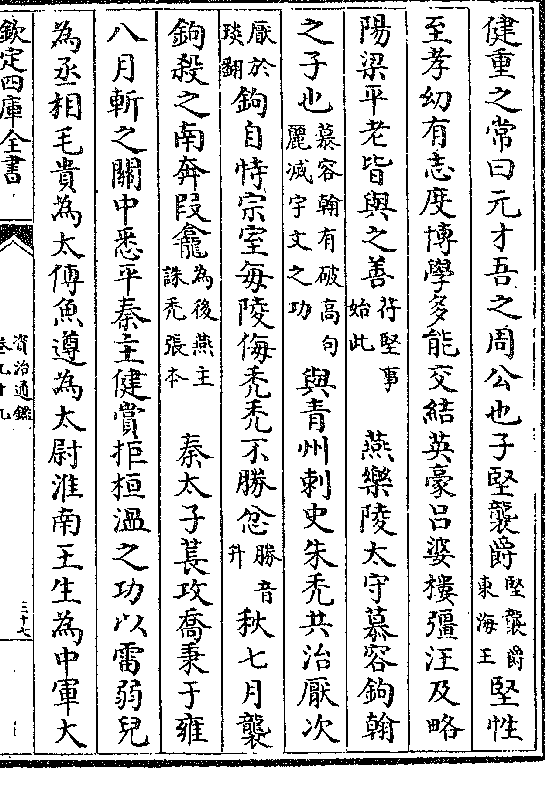 健重之常曰元才吾之周公也子堅襲爵堅襲爵東海王堅性
至孝幼有志度博學多能交結英豪呂婆樓彊汪及略
陽梁平老皆與之善苻堅事始此 燕樂陵太守慕容鉤翰
之子也慕容翰有破高句麗滅宇文之功與青州刺史朱禿共治厭次
厭於琰翻鉤自恃宗室毎陵侮禿禿不勝忿勝音升秋七月襲
鉤殺之南奔段龕為後燕主誅禿張本 秦太子萇攻喬秉于雍
八月斬之關中悉平秦主健賞拒桓溫之功以雷弱兒
為丞相毛貴為太傅魚遵為太尉淮南王生為中軍大
欽定四庫全書
資治通鑑
卷九十九
三十七